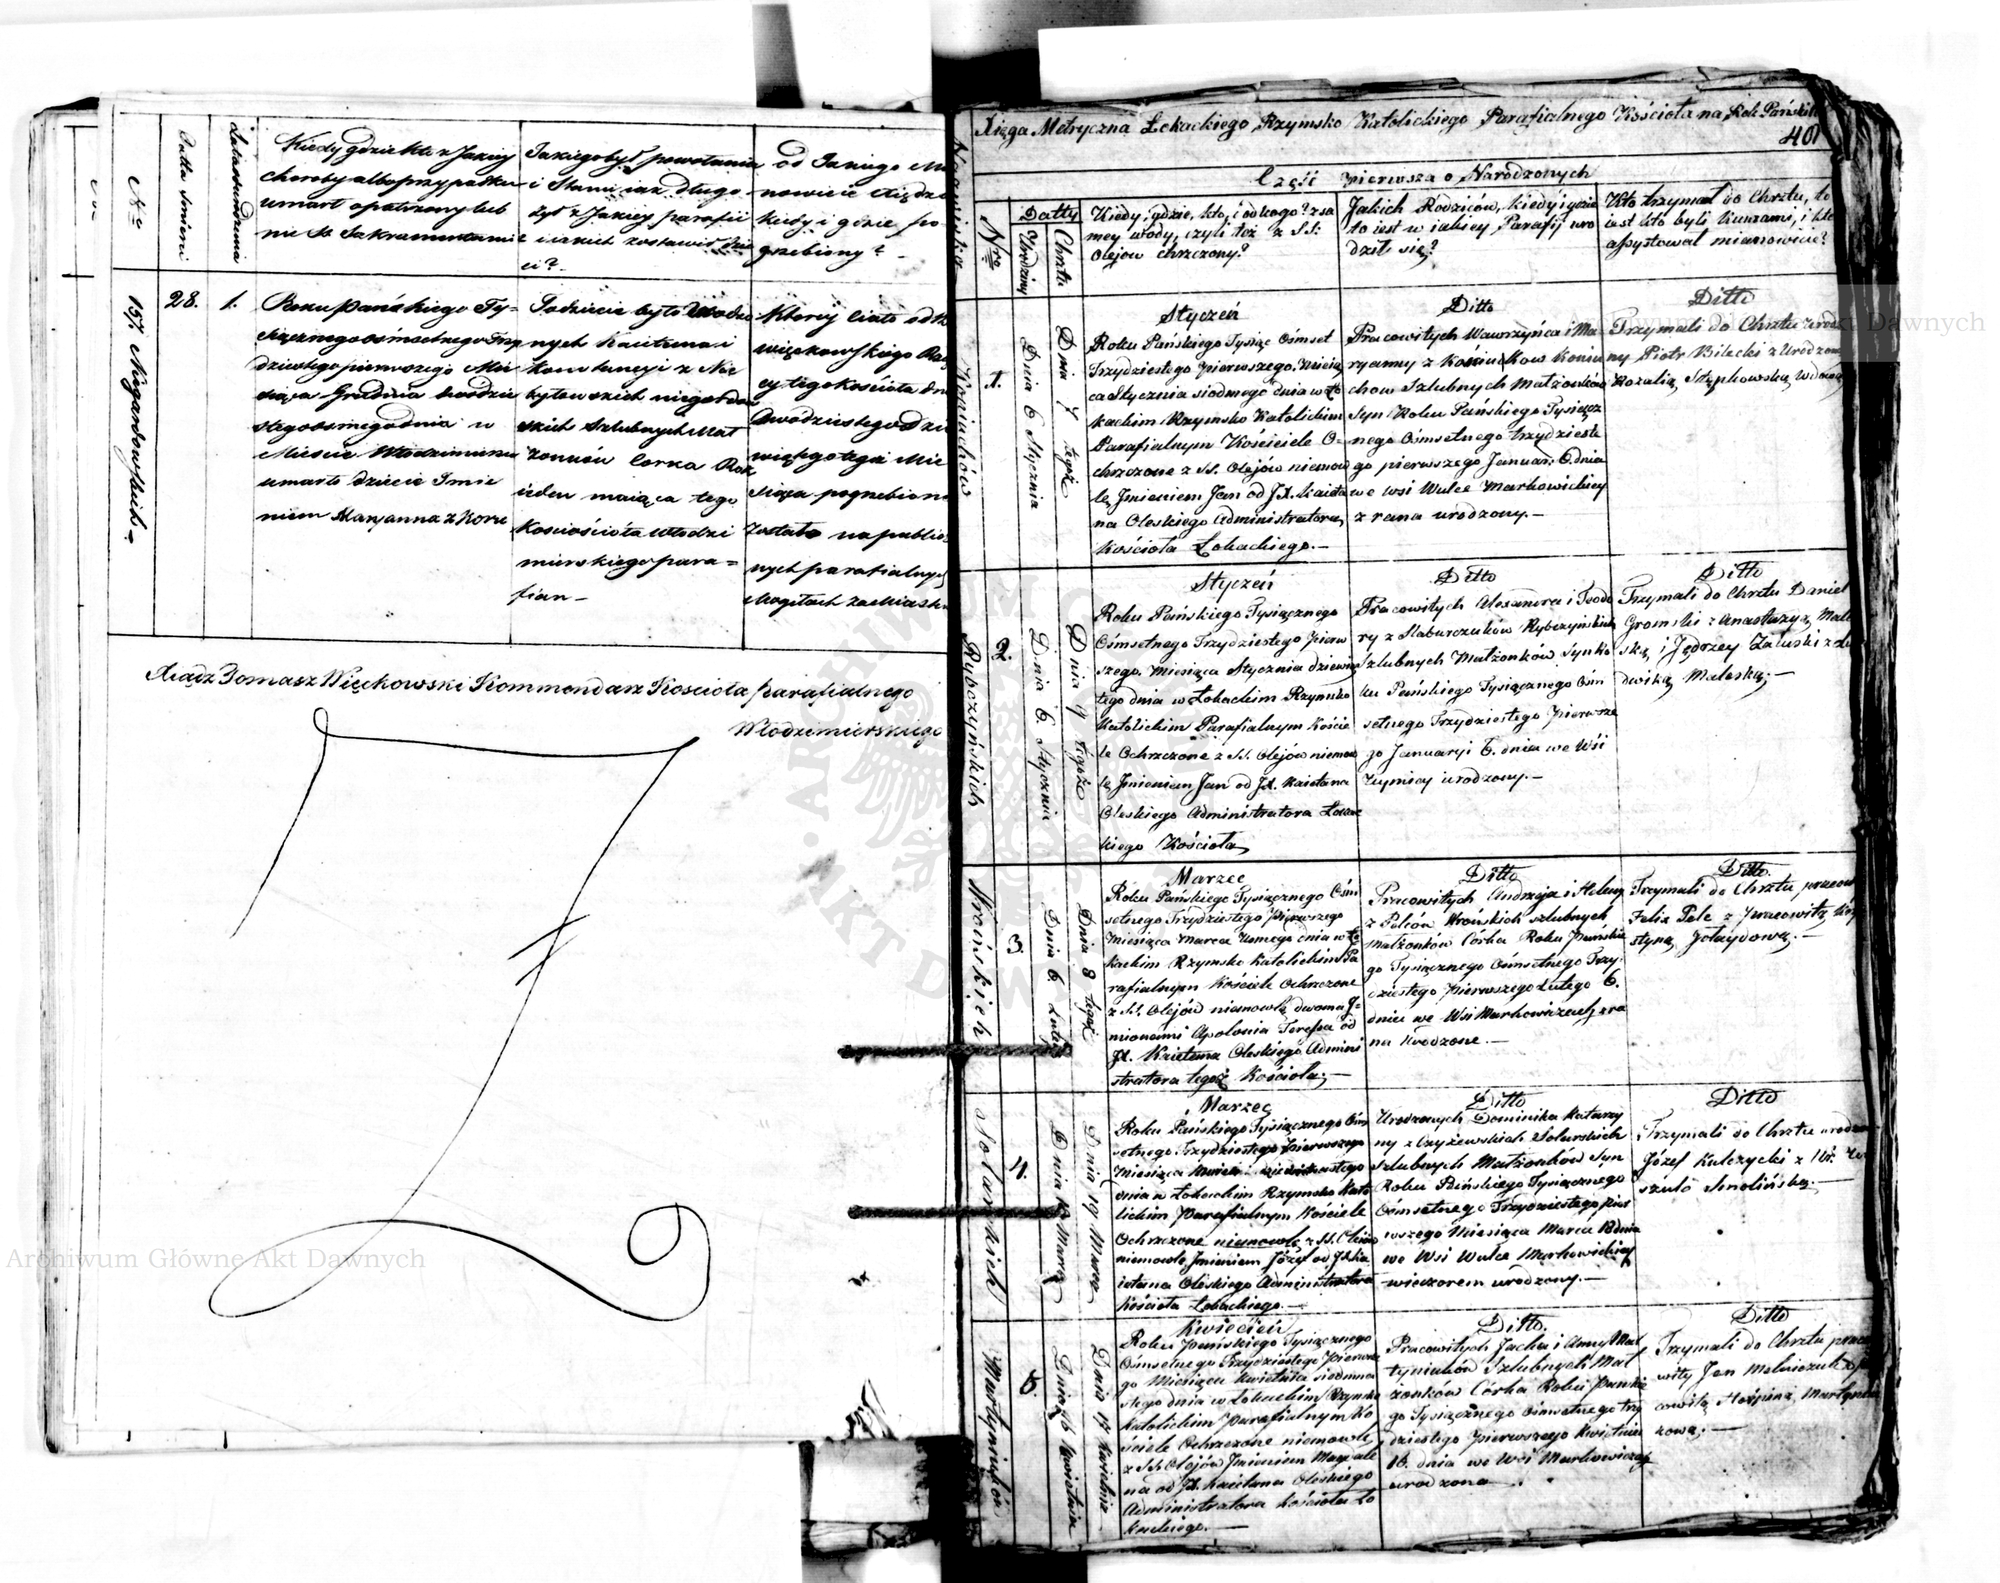 Nro
Datta śmierci
Lata urodzenia
Kiedy gdzie kto z Jakiey
choroby albo przypadku
umarł opatrzony lub
nie SS. Sakramentami
Jakiego był powołania
i Stanu iak długo
żył z Jakiey parafii
i iakich zostawił dzie
ci?
od Jakiego Mia
nowicie Xiędza
kiedy i gdzie po
grzebiony?
157
28.
1.
Roku Pańskiego Ty-
siącznego ośmsetnego Trzy
dziestego pierwszego Mie
siąca Grudnia dwudzie
stego osmego dnia w
Mieście Włodzimierzu
umarło dziecie Imie
niem Maryanna z Koru
Kościoła Włodzi
mierskiego para=
fian
Którey ciało od X
więckowskiego
cy tego kościoła dnia
dwudziestego dzie
wiątego tegoż Mie
siąca pogrzebione
zostało na publicz
nych parafialnych
Mogiłach za Miastem
Xiądz Tomasz Więckowski Kommendarz Kościoła parafialnego
Włodzimierskiego
Xięga Metryczna Łokackiego Rzymsko Katolickiego Parafialnego Kościoła na Rok Pański
401
Część pierwsza o Narodzonych
Nro
Datty
Urodziny
Chrztu
Kiedy, gdzie, kto, i od kogo? z sa
mey wody, czyli też z SS:
Olejow chrzczony?
Jakich Rodziców, kiedy i gdzie
to iest w iakiey Parafij uro
dził się?
Kto trzymał do Chrztu, to
iest kto byli Kumami, i kto
assystował mianowicie?
Koniuchów
1.
Dnia 6 Stycznia
Dnia 7 tegoż
Styczeń
Roku Pańskiego Tysiąc Ośmset
Trzydziestego pierwszego, Miesią
ca Stycznia siódmego dnia w Ło
kackim Rzymsko Katolickim
Parafialnym Kościele O=
chrzczone z SS. Olejów niemow
lę Jmieniem Jan od JX. Kaieta
na Oleskiego Administratora
Kościoła Łokackiego.—
Ditto
Pracowitych Wawrzyńca i Ma-
ryanny z Kościuków Koniu
chow Szlubnych Małżonków
Syn Roku Pańskiego Tysiącz
nego Ośmsetnego trzydzieste
go pierwszego Januar: 6. dnia
we wsi Wulce Markowickiey
z rana urodzony.—
Ditto
Trzymali do Chrztu urodz
ny Piotr Bilecki z Urodzoną
Rozalią Stępkowską Wdową
Rybczyńskich
2.
Dnia 6. Stycznia
Dnia 9 tegoż
Styczeń
Roku Pańskiego Tysiącznego
Ośmsetnego Trzydziestego pierw
szego, Miesiąca Stycznia dziewią
tego dnia w Łokackim Rzymsko
Katolickim Parafialnym Koście
le Ochrzczone z SS. Olejów niemow
lę Jmieniem Jan od JX. Kaietana
Oleskiego Administratora Łokac
kiego Kościoła
Ditto
Pracowitych Alexandra i Teodo
ry z Slaburczuków Rybczyńskich
szlubnych Małżonków Syn Ro
ku Pańskiego Tysiącznego Ośm
setnego Trzydziestego pierwsze
go Januaryi 6. dnia we Wsi
urodzony.—
Ditto
Trzymali do Chrztu Daniel
Gromski z Anastazyą Male
ską, i Jędrzey Załuski z Lu
dwiką Maleską.—
Wrońskich
3.
Dnia 6. Lutego
Dnia 8 tegoż
Marzec
Roku Pańskiego Tysiącznego Ośm
setnego Trzydziestego pierwszego
Miesiąca Marca dnia w Ło
kackim Rzymsko Katolickim Pa
rafialnym Kościele Ochrzczone
z SS. Olejów niemowlę dwoma J=
mionami Apolonia Teressa od
JX. Kaietana Oleskiego Admini
stratora tegoż Kościoła.—
Ditto
Pracowitych Andrzeja i Heleny
z Pelców Wrońskich szlubnych
Małżonków Córka Roku Pańskie
go Tysiącznego Ośmsetnego Trzy
dziestego pierwszego Lutego 6.
dnia we Wsi Markowiczach z ra
na Urodzone.—
Ditto
Trzymali do Chrztu pracow
Felix Pelc z Pracowitą Kry
styną
4.
Dnia 19 Marca
Marzec
Roku Pańskiego Tysiącznego Ośm
setnego Trzydziestego pierwszego
Miesiąca Marca dziewiętnastego
dnia w Łokackim Rzymsko Kato
lickim Parafialnym Kościele
Ochrzczone niemowlę z SS. Olejów
niemowlę Jmieniem Józef od JX. Ka
ietana Oleskiego Administratora
Kościoła Łokackiego.—
Ditto
Urodzonych Dominika Katarzy
ny z Czyżewskich Solarskich
Szlubnych Małżonków Syn
Roku Pańskiego Tysiącznego
Ośmsetnego Trzydziestego pier
wszego Miesiąca Marca dnia
we Wsi Wulce Markowickiey
wieczorem urodzony.—
Ditto
Trzymali do Chrztu urodzon
Józef Kulczycki z Ur.
szulą Smolińską.—
Martyniuków
5.
Dnia 16 Kwietnia
Dnia 17 Kwietnia
Kwiecień
Roku Pańskiego Tysiącznego
Ośmsetnego Trzydziestego pierwsze
go Miesiąca Kwietnia siedmna
stego dnia w Łokackim Rzymsko
Katolickim Parafialnym Ko
ściele Ochrzczone niemowlę
z SS. Olejów Jmieniem Magdale
na od JX. Kaietana Oleskiego
Administratora Kościoła Ło
kackiego.—
Ditto.
Pracowitych Jacka i Anny Mar
tyniuków Szlubnych Mał
żonków Córka Roku Pańskie
go Tysiącznego Ośmsetnego trzy
dziestego pierwszego Kwietnia
16. dnia we Wsi Markowiczach
urodzona
Ditto
Trzymali do Chrztu praco
wity Jan Melniczuk z pra
cowitą Maryną Martyniu
kową.—
Archiwum Główne Akt Dawnych
Archiwum Główne Akt Dawnych
ARCHIWUM GŁÓWNE · AKT DAWNYCH ·